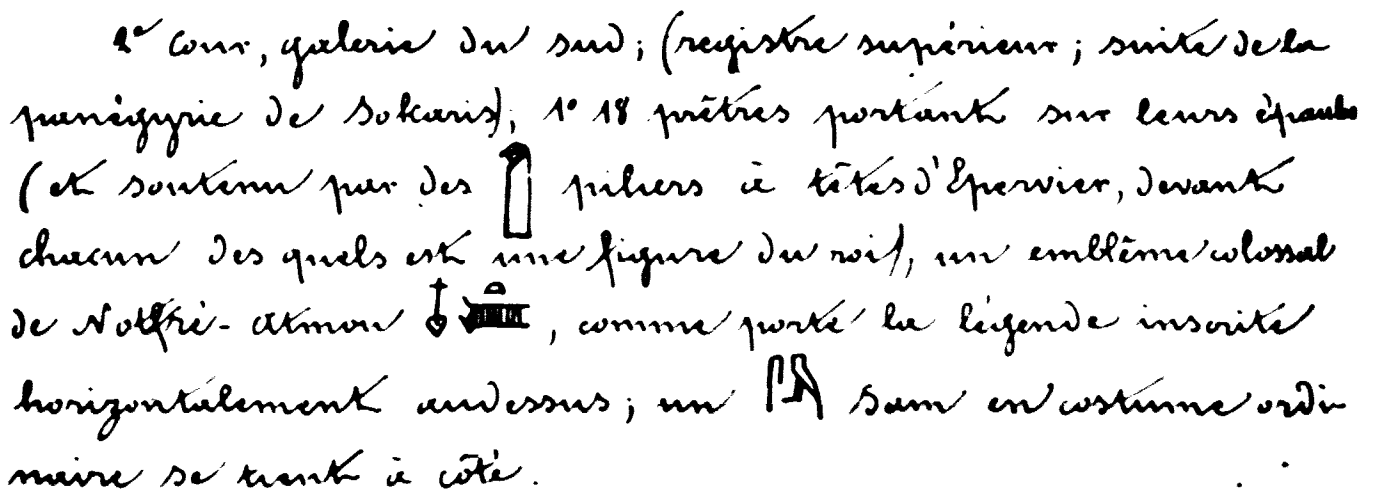 2e cour, galerie du sud; (registre supérieur; suite de la
panégyrie de Sokaris), 1° 18 prêtres portant sur leurs épaules
(et soutenu par des 𓅃 piliers à têtes d'Epervier, devant
chacun des quels est une figure du roi), un emblême colossal
de Nofré-Atmou 𓄤𓏏𓍃, comme porte la légende inscrite
horizontalement audessus; un 𓋴 Sam en costume ordi-
naire se tient à côté.